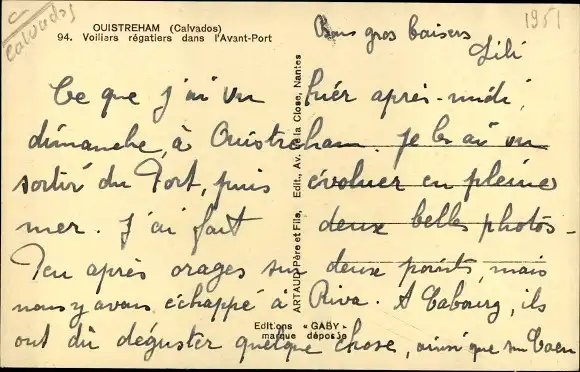 Calvados
1951
OUISTREHAM (Calvados)
94. Voiliers régatiers dans l'Avant-Port
Bons gros baisers
Lili
Ce que j'ai vu hier après-midi,
dimanche, à Ouistreham. Je les ai vu
sortir du Port, puis évoluer en pleine
mer. J'ai fait deux belles photos -
Peu après orages sur deux points, mais
nous y avons échappé à Riva. A Cabourg, ils
ont dû déguster quelque chose, ainsi que sur Caen
ARTAUD Père et Fils, Edit., Av. de la Close, Nantes
Editions « GABY »
marque déposée